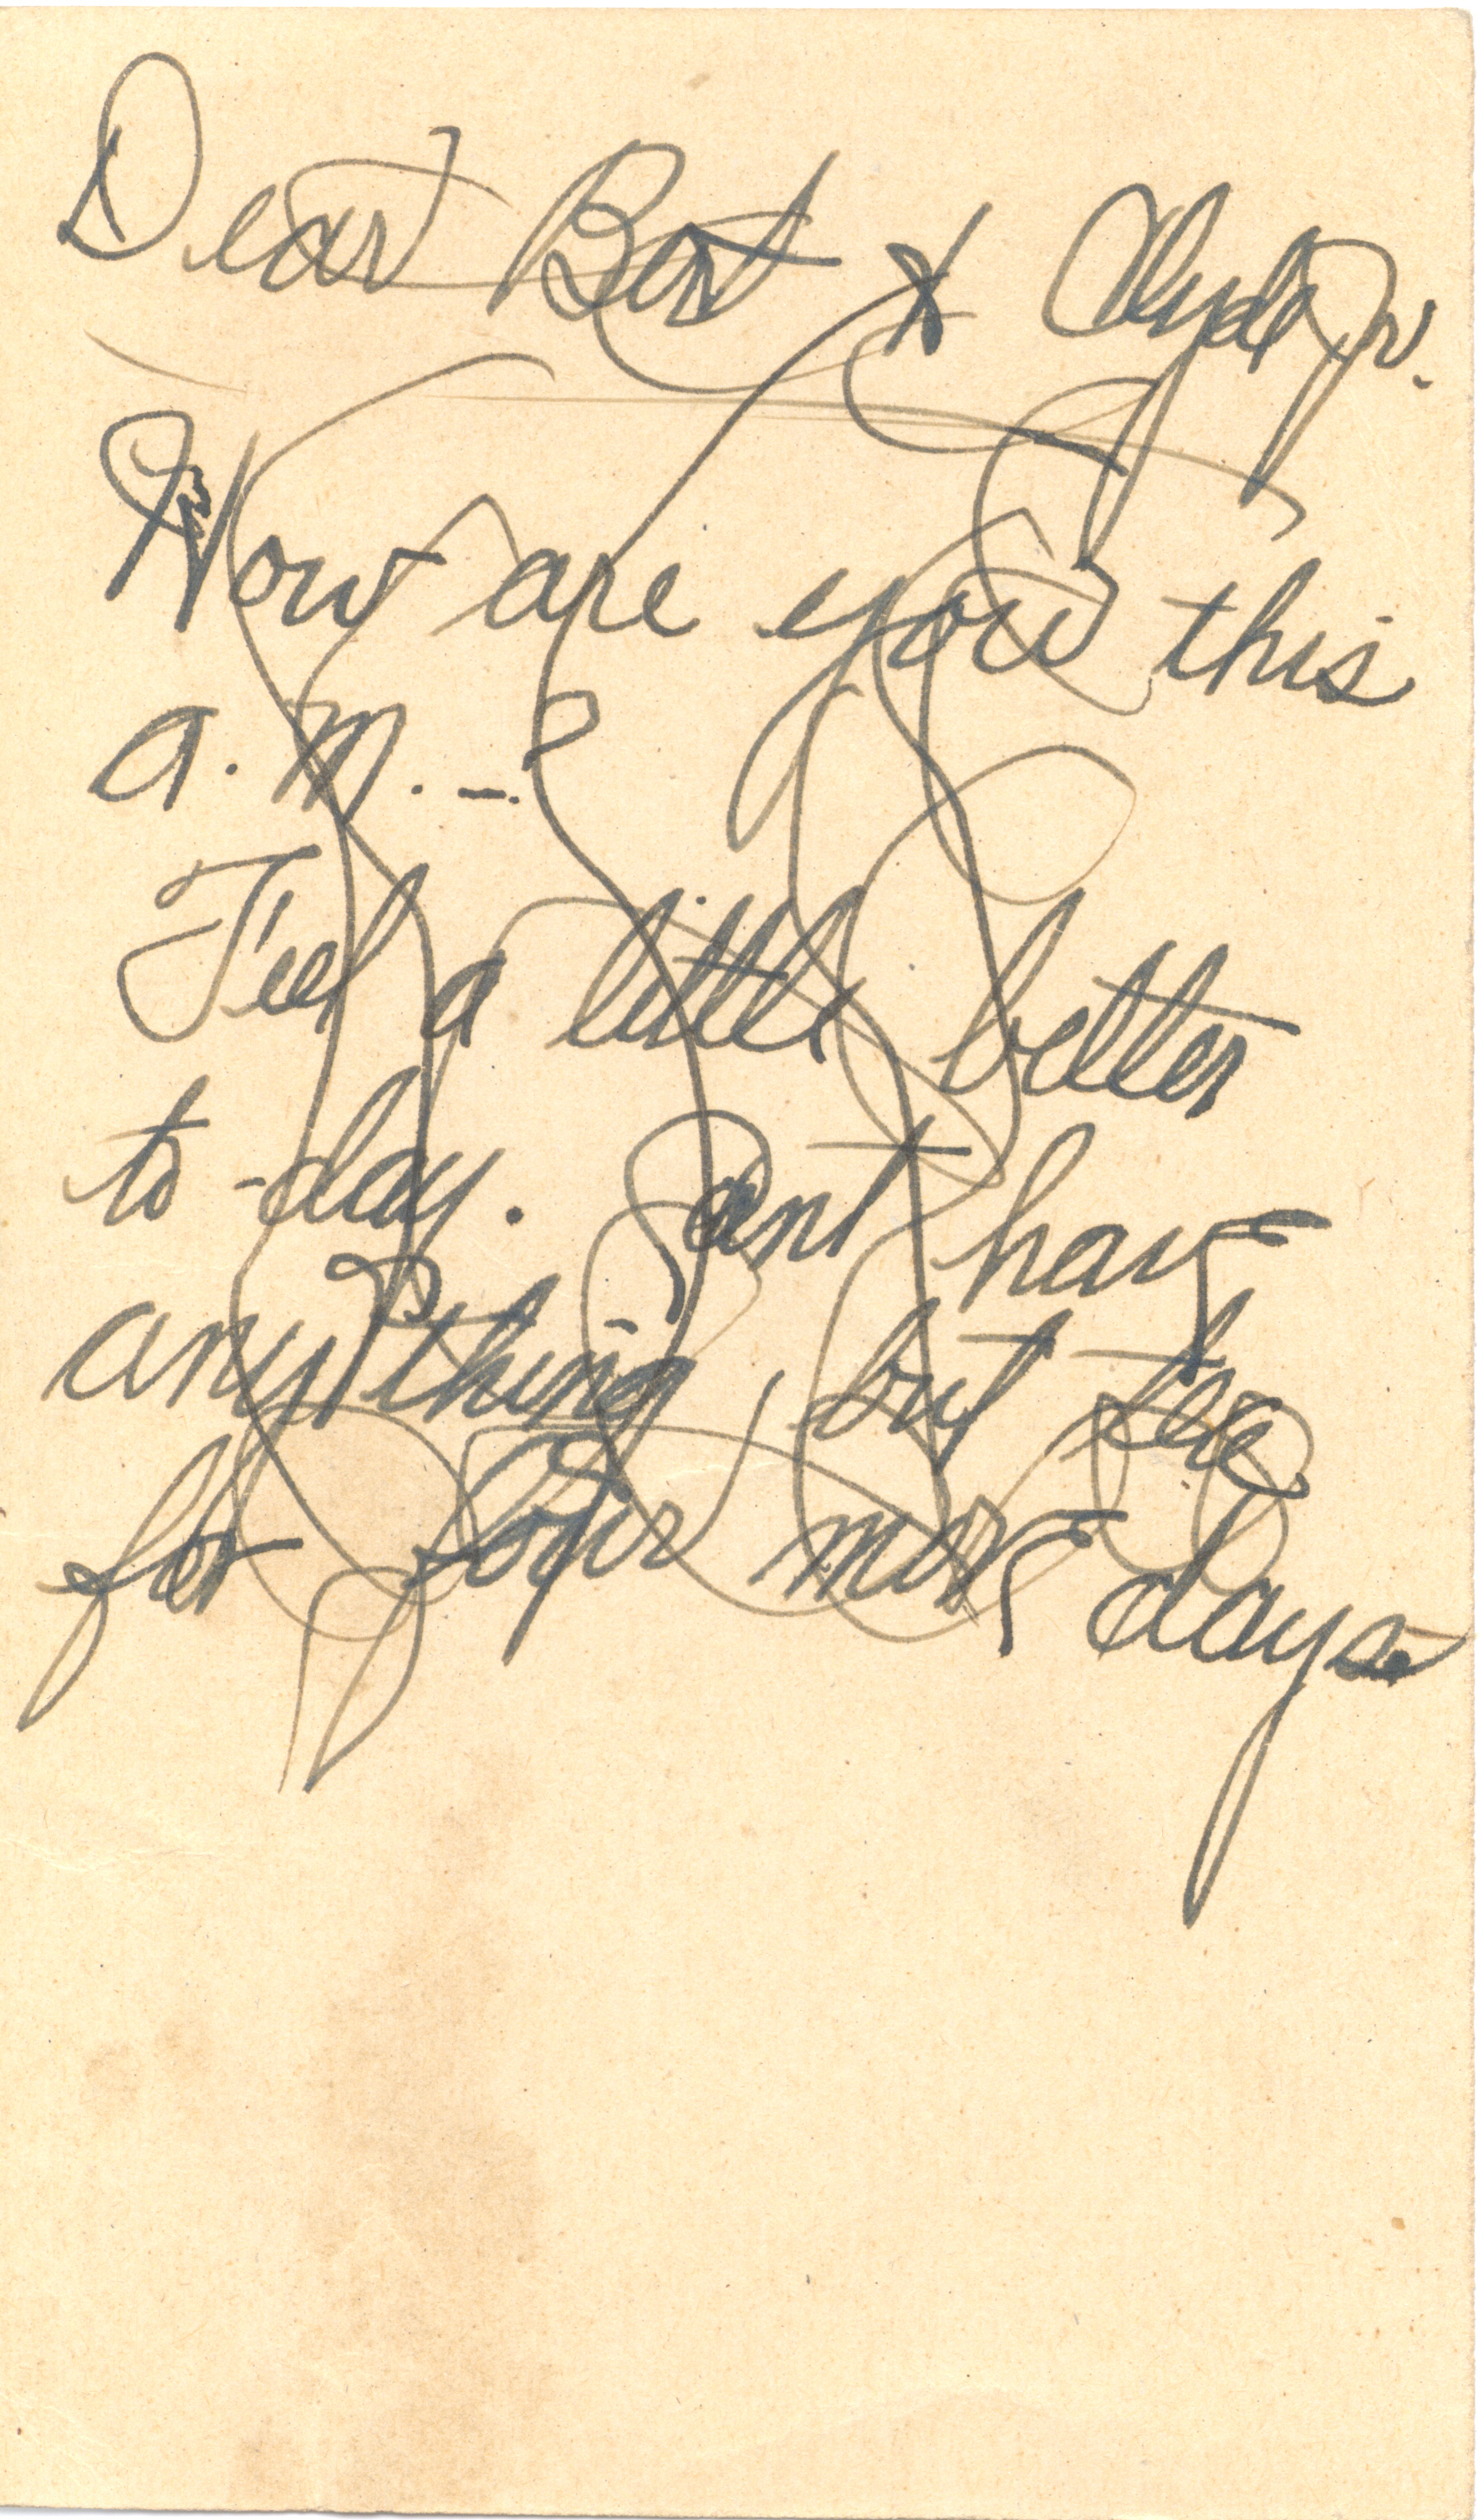 Dear Bert & Clyde Jr.
How are you this
a.m. - ?
Feel a little better
to-day. Cant have
anything, but tea
for four more days